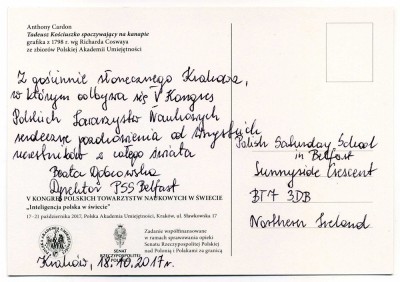 Anthony Cardon
Tadeusz Kościuszko spoczywający na kanapie
grafika z 1798 r. wg Richarda Coswaya
ze zbiorów Polskiej Akademii Umiejętności
Z gościnnie słonecznego Krakowa,
w którym odbywa się V Kongres
Polskich Towarzystw Naukowych
serdeczne pozdrowienia od wszystkich
uczestników z całego świata
Beata Dąbrowska
Dyrektor PSS Belfast
Polish Saturday School
in Belfast
Sunnyside Crescent
BT7 3DB
Northern Ireland
V KONGRES POLSKICH TOWARZYSTW NAUKOWYCH W ŚWIECIE
„Inteligencja polska w świecie"
17-21 października 2017, Polska Akademia Umiejętności, Kraków, ul. Sławkowska 17
SENAT
RZECZYPOSPOLITEJ
POLSKIEJ
Zadanie współfinansowane
w ramach sprawowania opieki
Senatu Rzeczypospolitej Polskiej
nad Polonią i Polakami za granicą
Kraków, 18.10.2017r.